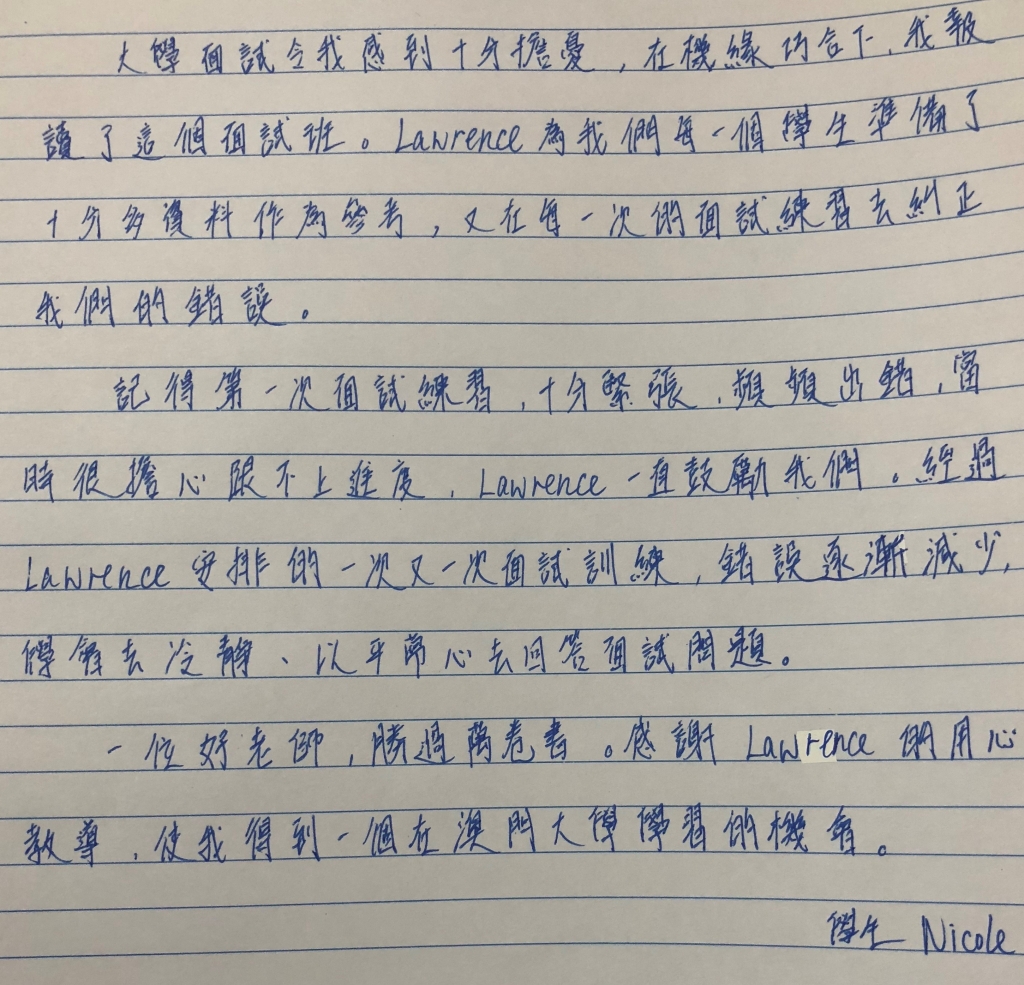 大學面試令我感到十分擔憂，在機緣巧合下，我報
讀了這個面試班。Lawrence為我們每一個學生準備了
十分多資料作為參考，又在每一次的面試練習去糾正
我們的錯誤。
記得第一次面試練習，十分緊張，頻頻出錯，當
時很擔心跟不上進度，Lawrence一直鼓勵我們。經過
Lawrence安排的一次又一次面試訓練，錯誤逐漸減少，
學會去冷靜、以平常心去回答面試問題。
一位好老師，勝過萬卷書。感謝 Lawrence 的用心
教導，使我得到一個在澳門大學學習的機會。
學生 Nicole